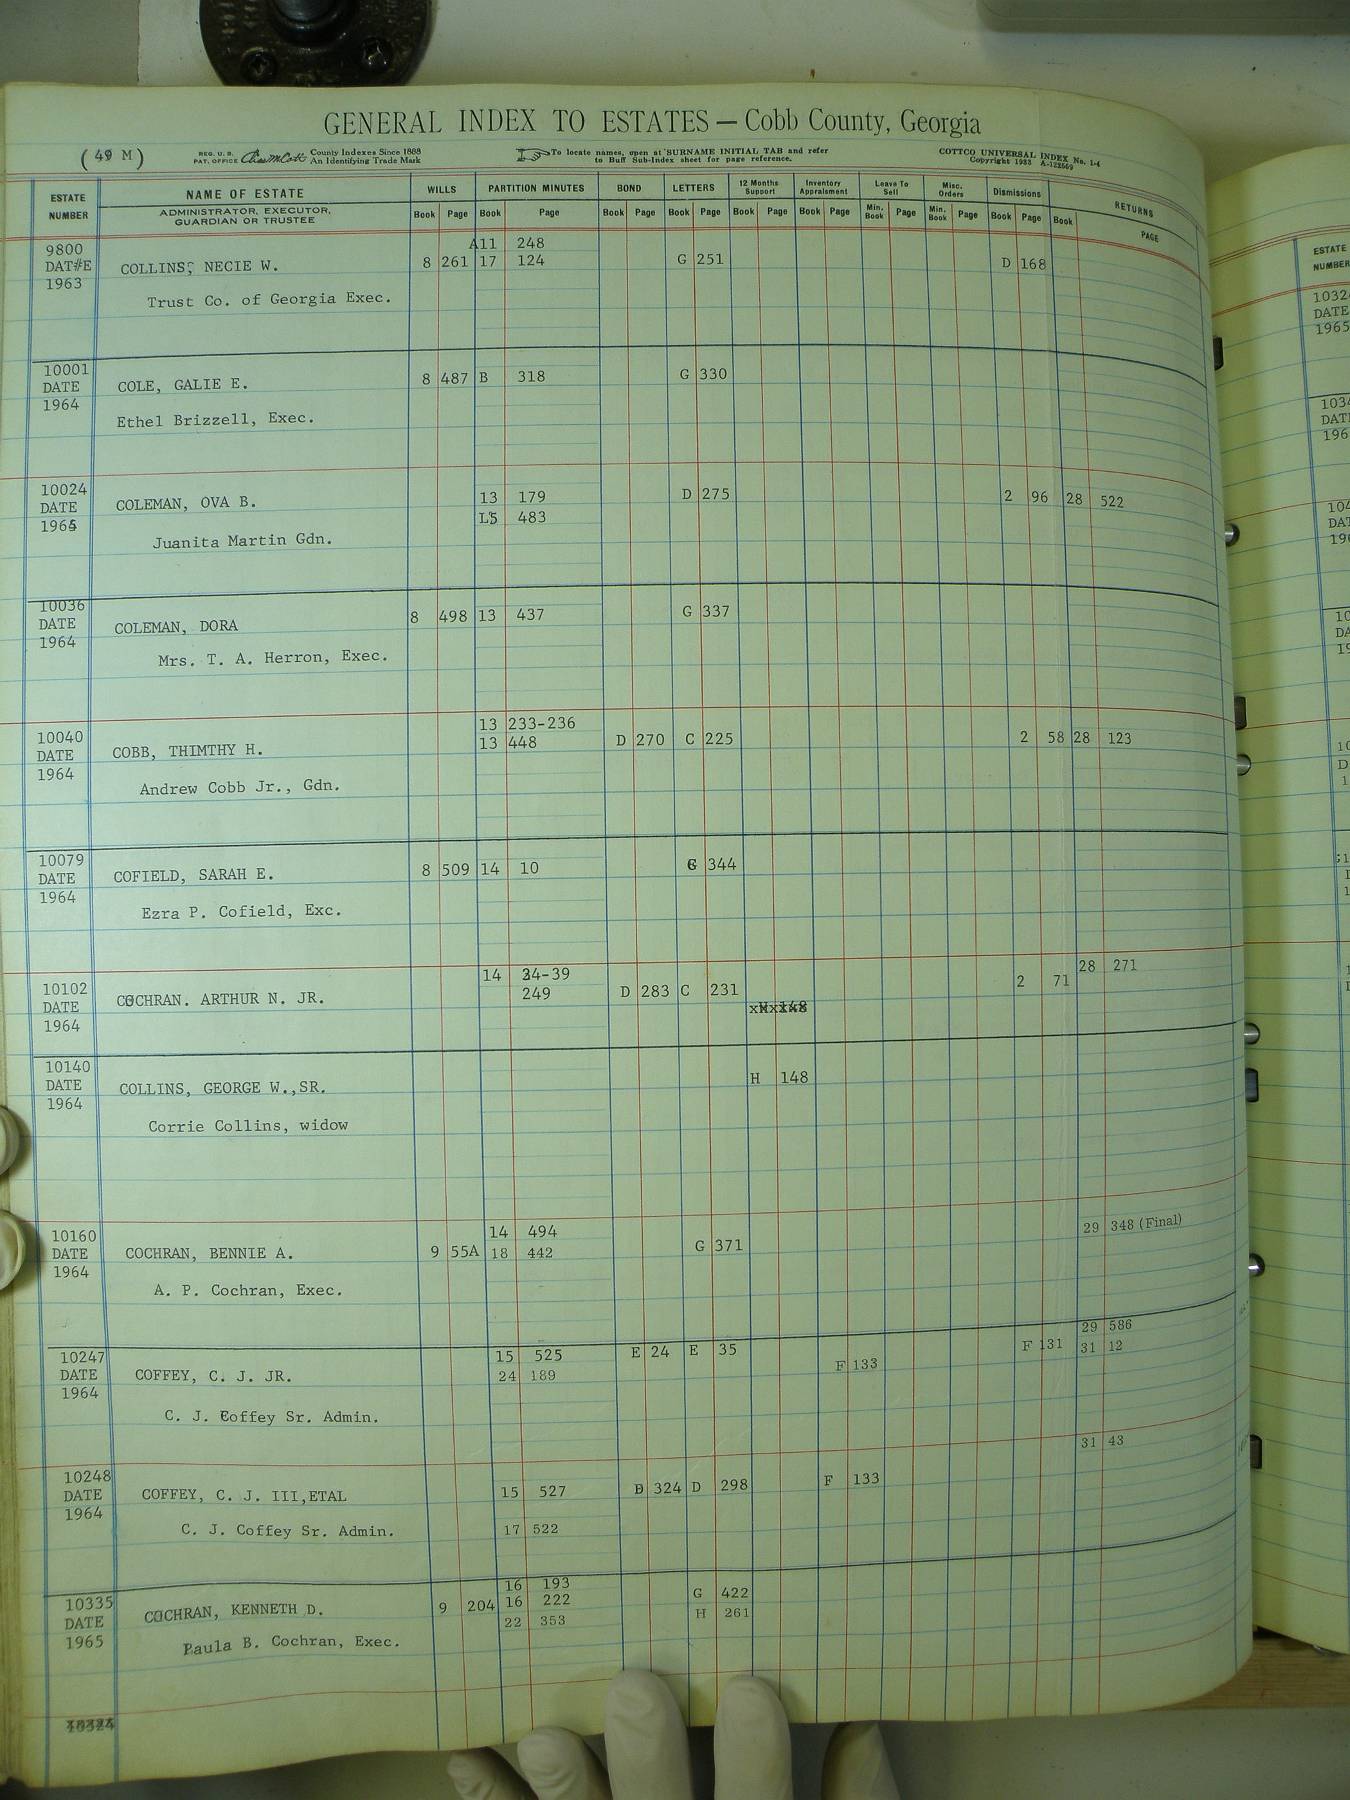 GENERAL INDEX TO ESTATES — Cobb County, Georgia
(49 M)
REG. U. S. PAT. OFFICE County Indexes Since 1888 An Identifying Trade Mark
To locate names, open at SURNAME INITIAL TAB and refer to Buff Sub-Index sheet for page reference.
COTTCO UNIVERSAL INDEX No. 1-4
Copyright 1933 A-122569
ESTATE NUMBER NAME OF ESTATE WILLS PARTITION MINUTES BOND LETTERS 12 Months Support Inventory Appraisment Leave To Sell Misc. Orders Dismissions RETURNS
ADMINISTRATOR, EXECUTOR, GUARDIAN OR TRUSTEE Book Page Book Page Book Page Book Page Book Page Book Page Min. Book Page Min. Book Page Book Page Book PAGE
9800 A11 248
DAT#E COLLINS, NECIE W. 8 261 17 124 G 251 D 168
1963
Trust Co. of Georgia Exec.
10001
DATE COLE, GALIE E. 8 487 B 318 G 330
1964
Ethel Brizzell, Exec.
10024
DATE COLEMAN, OVA B. 13 179 D 275 2 96 28 522
1965 L5 483
Juanita Martin Gdn.
10036
DATE COLEMAN, DORA 8 498 13 437 G 337
1964
Mrs. T. A. Herron, Exec.
13 233-236
10040 13 448 D 270 C 225 2 58 28 123
DATE COBB, THIMTHY H.
1964
Andrew Cobb Jr., Gdn.
10079
DATE COFIELD, SARAH E. 8 509 14 10 G 344
1964
Ezra P. Cofield, Exc.
14 34-39 28 271
10102 249 D 283 C 231 2 71
DATE COCHRAN. ARTHUR N. JR.
1964
10140
DATE COLLINS, GEORGE W.,SR. H 148
1964
Corrie Collins, widow
10160 14 494 29 348 (Final)
DATE COCHRAN, BENNIE A. 9 55A 18 442 G 371
1964
A. P. Cochran, Exec.
29 586
10247 15 525 E 24 E 35 F 131 31 12
DATE COFFEY, C. J. JR. 24 189 F 133
1964
C. J. Coffey Sr. Admin.
31 43
10248
DATE COFFEY, C. J. III,ETAL 15 527 D 324 D 298 F 133
1964
C. J. Coffey Sr. Admin. 17 522
16 193
10335 16 222 G 422
DATE COCHRAN, KENNETH D. 9 204 22 353 H 261
1965
Paula B. Cochran, Exec.
ESTATE
NUMBER
DATE
1965